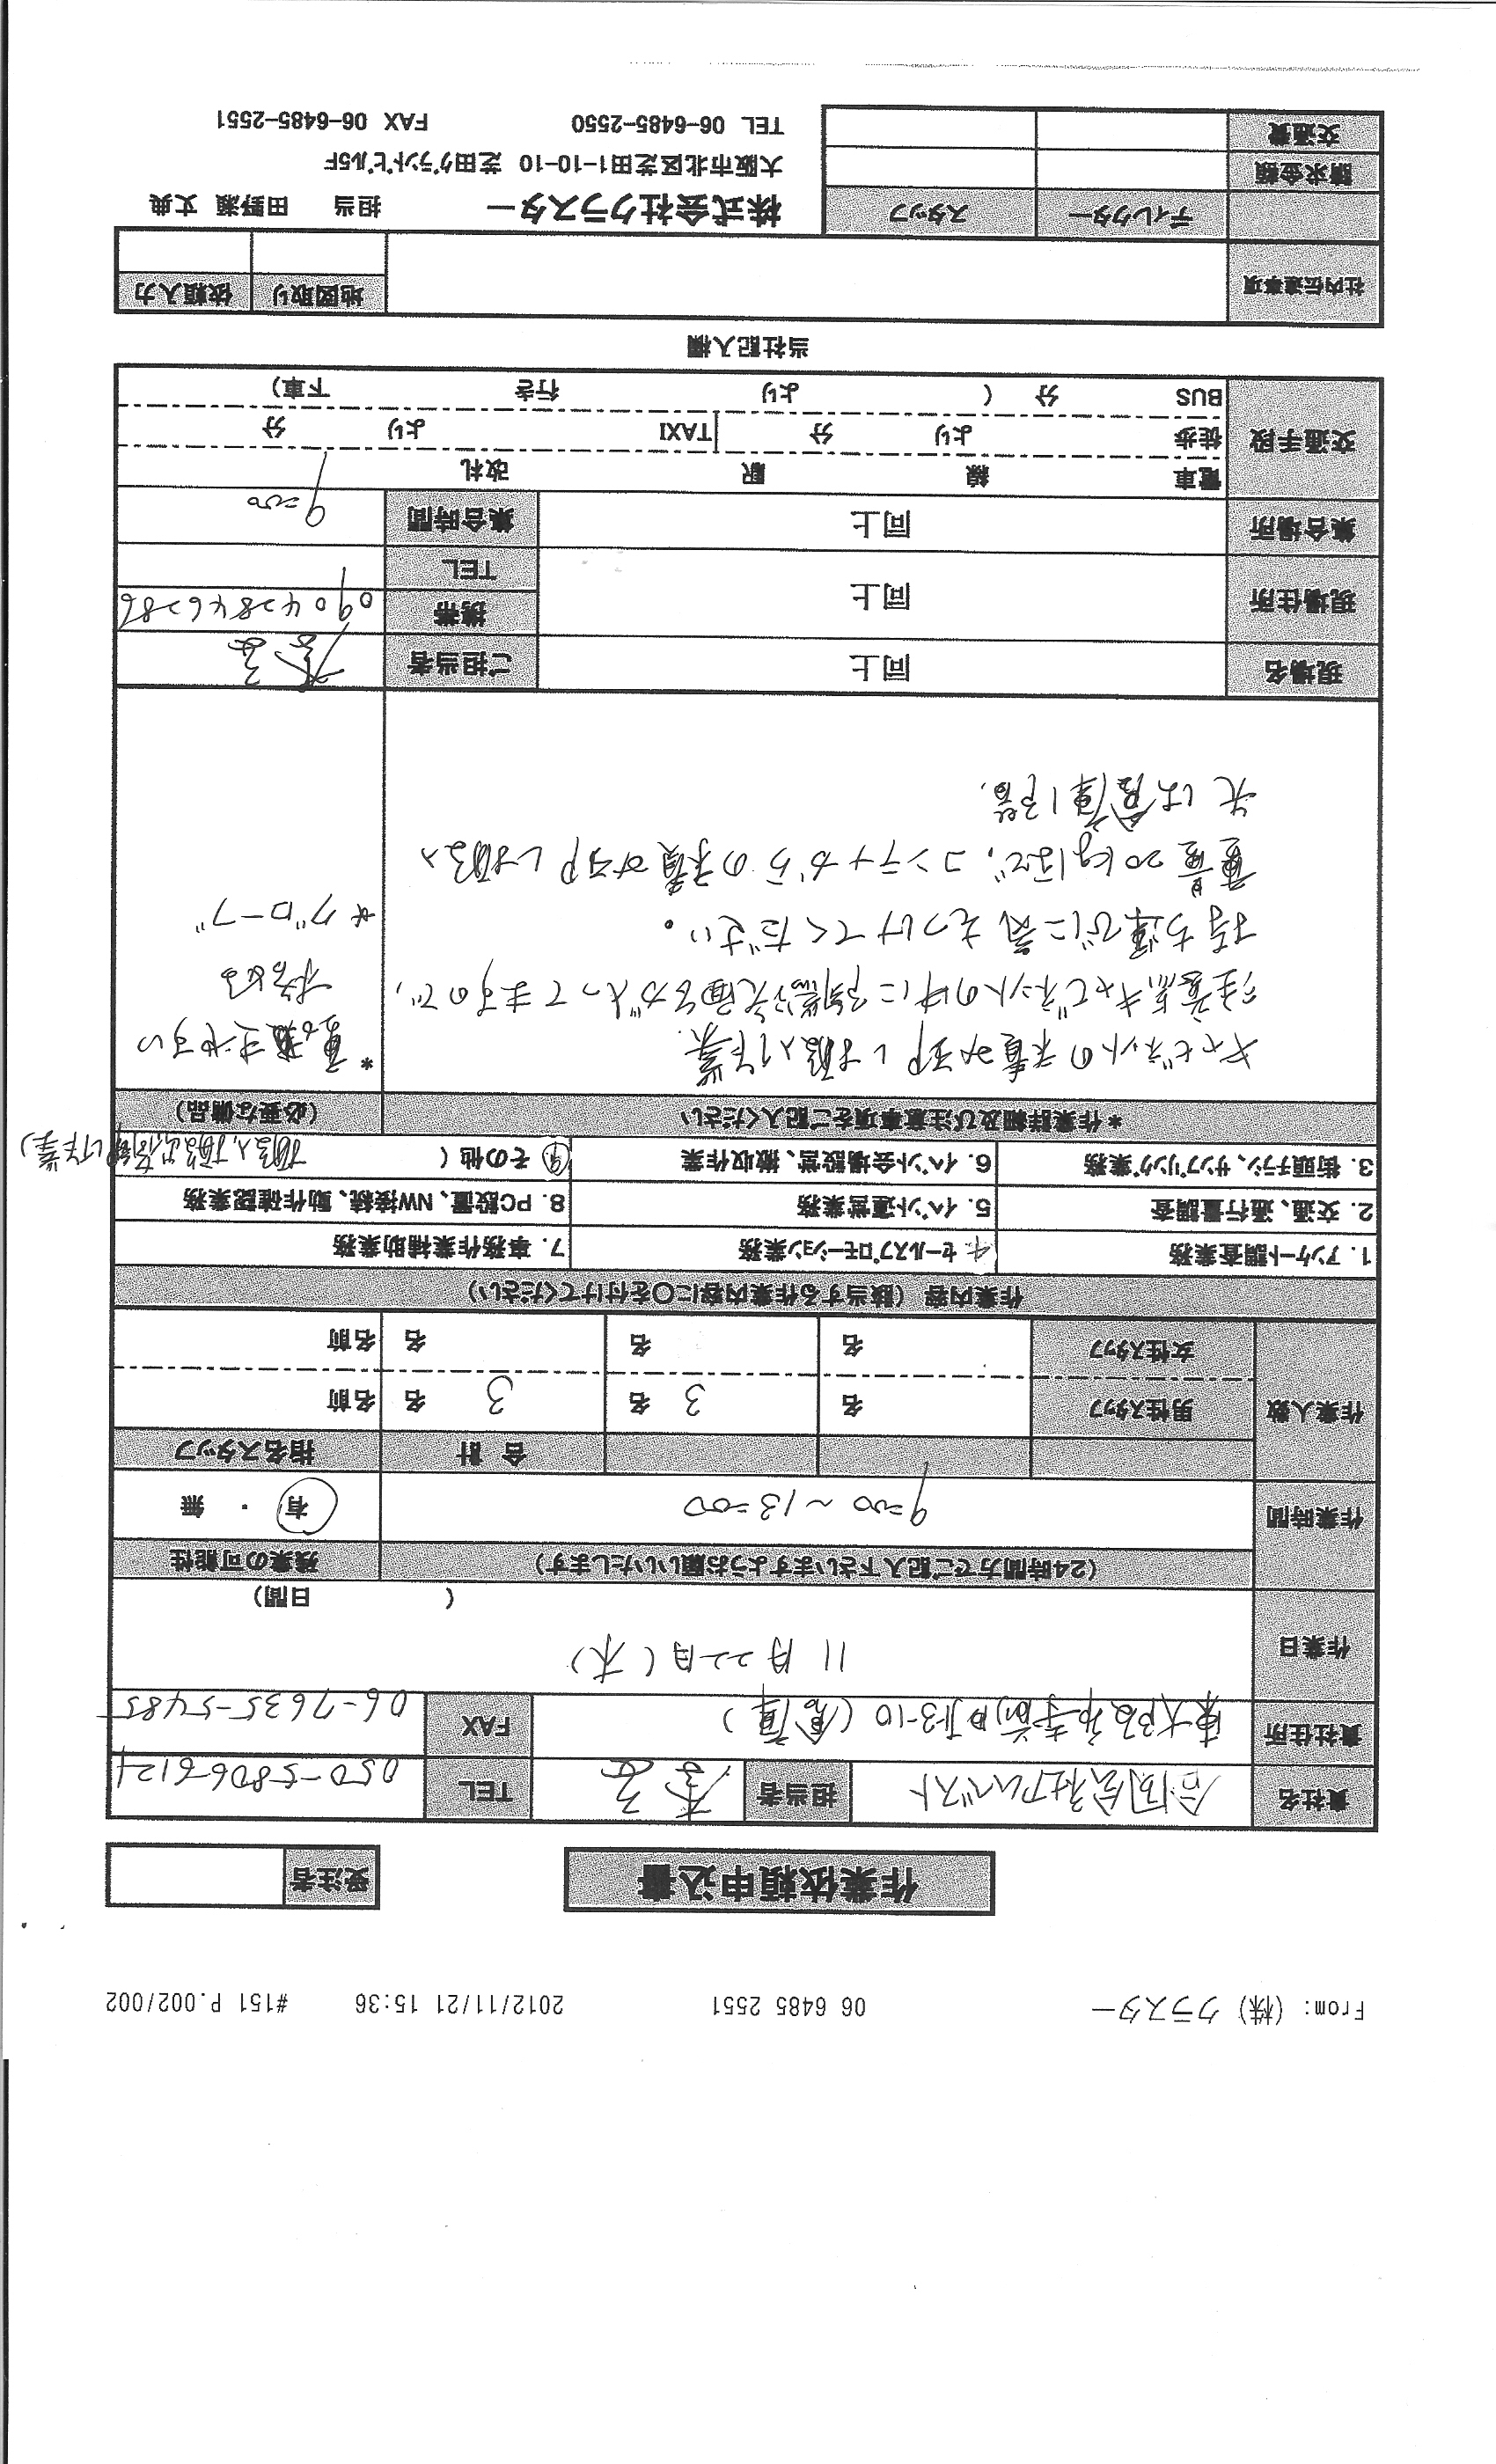 From: (株) クラスター 06 6485 2551 2012/11/21 15:36 #151 P.002/002
作業依頼申込書 受注者
貴社名 合同会社アルベスト 担当者 TEL 050-5806-6124
貴社住所 FAX 06-7635-5485
作業日 11月22日(木)
( 日間)
作業時間 (24時間方でご記入下さいますようお願いいたします) 残業の可能性
9:00 ~ 13:00 有 ・ 無
作業人数 合 計 指名スタッフ
男性スタッフ 名 3 名 3 名 名前
女性スタッフ 名 名 名 名前
作業内容 (該当する作業内容に〇を付けてください)
1. アンケート調査業務 4. セールスプロモーション業務 7. 事務作業補助業務
2. 交通、通行量調査 5. イベント運営業務 8. PC設置、NW接続、動作確認業務
3. 街頭チラシ、サンプリング業務 6. イベント会場設営、撤収作業 9 その他 (
*作業詳細及び注意事項をご記入ください (必要な備品)
キャビネットの荷卸し搬入作業
注意点キャビネットの中に 入ってますので、
持ち運びに気をつけてください。
重量20kgほどで、コンテナからの し搬入
先は倉庫1階。
*
*グローブ
現場名 同上 ご担当者
現場住所 同上 携帯 09042846286
TEL
集合場所 同上 集合時間 9:00
交通手段 電車 線 駅 改札
徒歩 より 分 TAXI より 分
BUS 分 ( より 行き 下車)
当社記入欄
社内伝達事項 地図取り 依頼入力
ディレクター スタッフ
請求金額
交通費
株式会社クラスター 担当 田野瀬 丈典
大阪市北区芝田1-10-10 芝田グランドビル5F
TEL 06-6485-2550 FAX 06-6485-2551